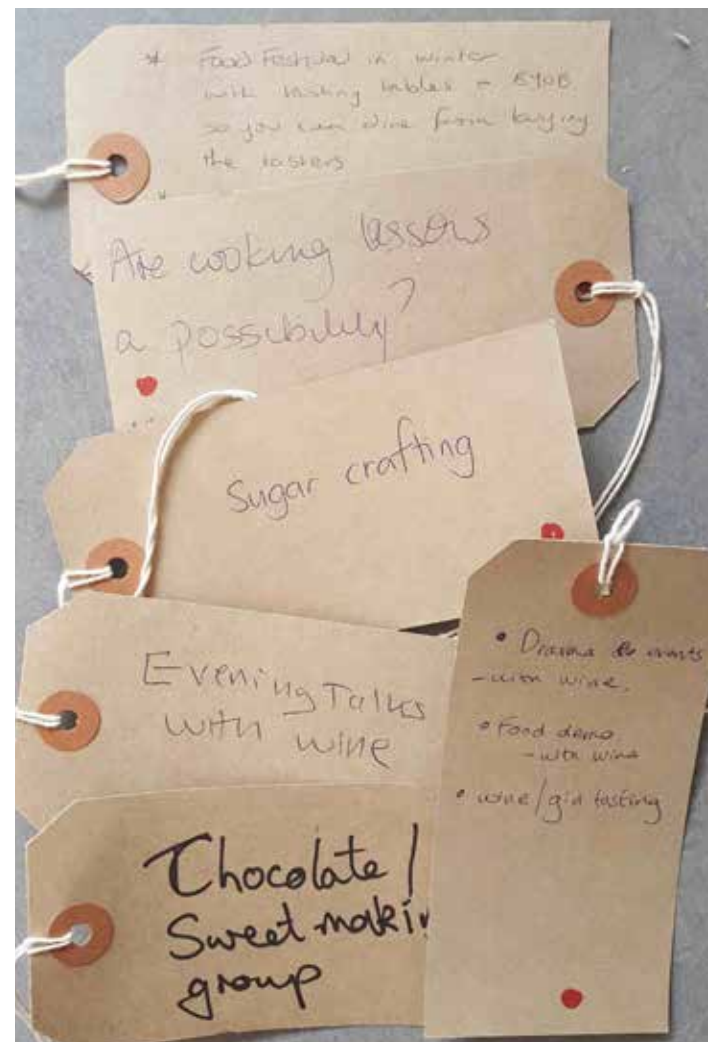 * Food Festival in winter
with tasting tables - BYOB
so you can dine from buying
the tasters
Are cooking lessons
a possibility?
Sugar crafting
Evening Talks
with wine
Chocolate/
Sweet makin
group
• Drama & events
- with wine.
• Food demo
- with wine
• wine/gin tasting